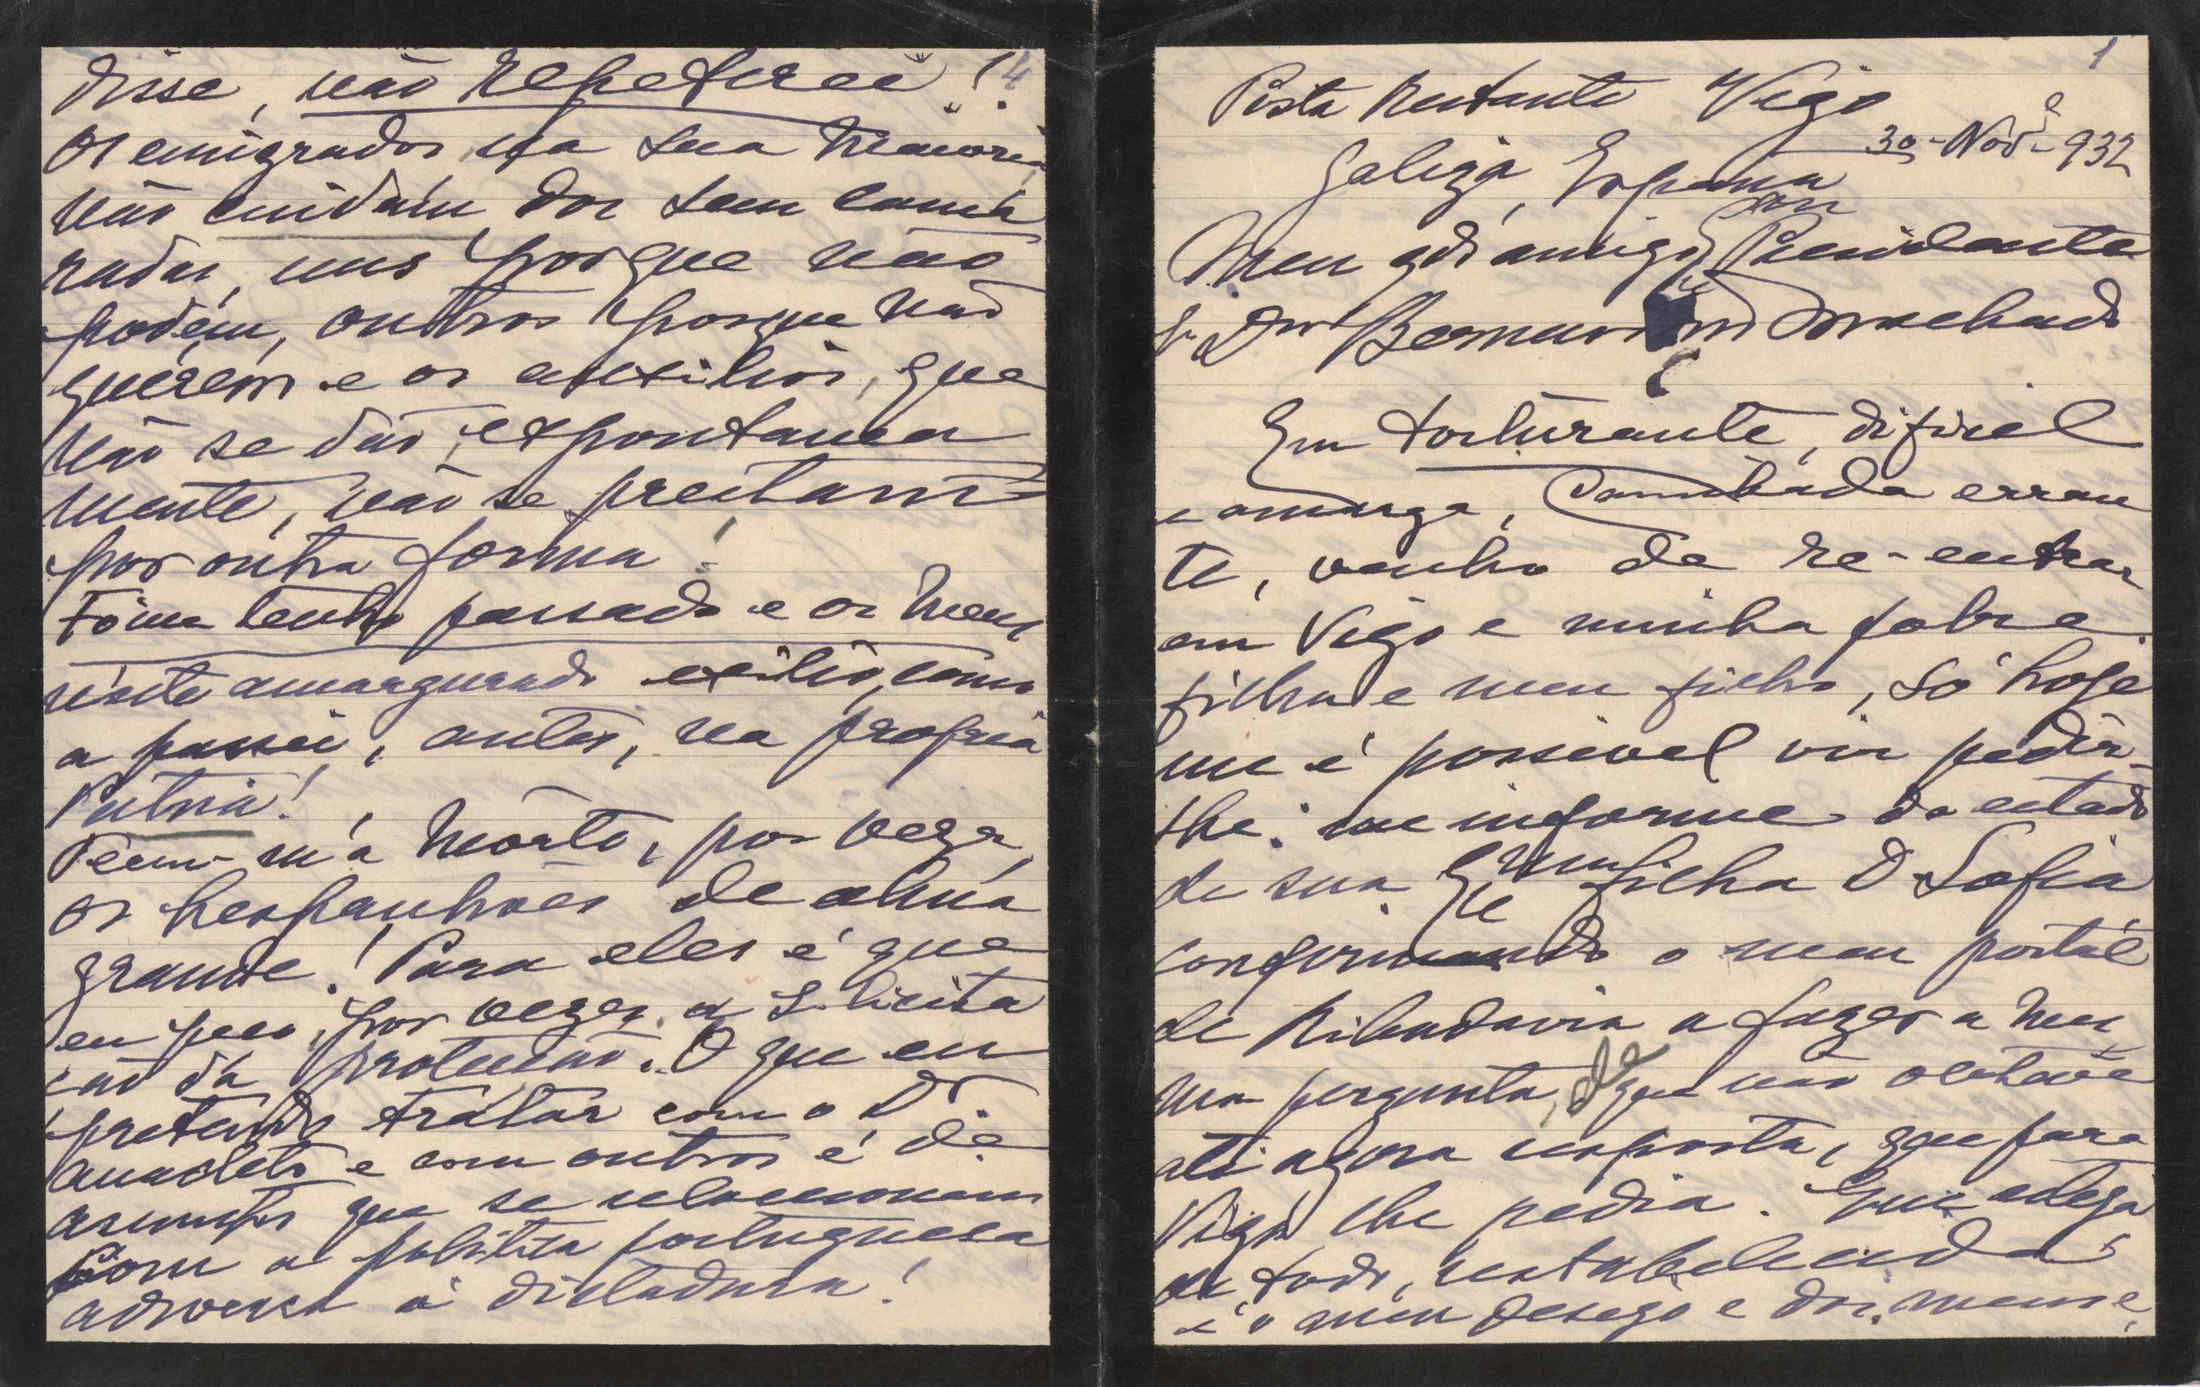 disse, não repetirei!. 4
Os emigrados na sua maioria
não cuidam dos seus cama
radas, uns porque não
podem, outros porque não
querem e os auxilios, que
não se dão expontanea
mente, não se prestam
por outra forma!
Fome tenho passado e os meus
n'este amargurado exilio, como
a passei, antes, na propria
Patria!
Teem-m'a morto, por vezes,
os hespanhoes de alma
grande! Para eles é que
eu peço, por vezes, a solicita
ção da protecção. O que eu
pretendo tratar com o Dr
Anacleto e com outros é de
asumptos que se relacionam
com a politica portuguesa
adversa á dictadura!
1
Posta Restante Vigo
30-Nov-932
Galiza, Espana
Meu qdo amigo Exmo Presidente
Sr Dor Bernardino Machado
Em torturante, dificil
e amarga, caminhada erran
te, venho de re-entrar
em Vigo e minha pobre
filha e meu filho, só hoje
me é possivel vir pedir-
lhe: me informe do estado
de sua Exma filha D Sofia
confirmando o meu postal
de Ribadavia a fazer a mes
ma pergunta, de que não obtive
até agora resposta, que para
Vigo lhe pedia. Que esteja
de todo, restabelecida
é o meu desejo e dos meus e,